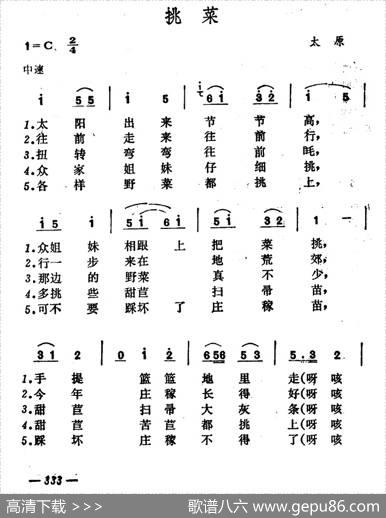 挑菜
1=C 2/4 太原
中速
i 55 i 5 61 32 i 5
1.太阳出来节节高，
2.往前走来往前行，
3.扭转弯弯往前眊，
4.众家姐妹仔细挑，
5.各样野菜都挑上，
51 5 i 5i 6i 5i 32 1 —
1.众姐妹相跟上把菜挑，
2.行一步来在地荒郊，
3.那边的野菜真不少，
4.多挑些甜苣扫帚苗，
5.可不要踩坏了庄稼苗，
31 2 0 i 2 656 53 5.3 2
1.手提篮篮地里走(呀咳
2.今年庄稼长得好(呀咳
3.甜苣扫帚大灰条(呀咳
4.甜苣苦苣都挑上(呀咳
5.踩坏庄稼不得了(呀咳
— 333 —
高清下载 >>> 歌谱八六 www.gepu86.com